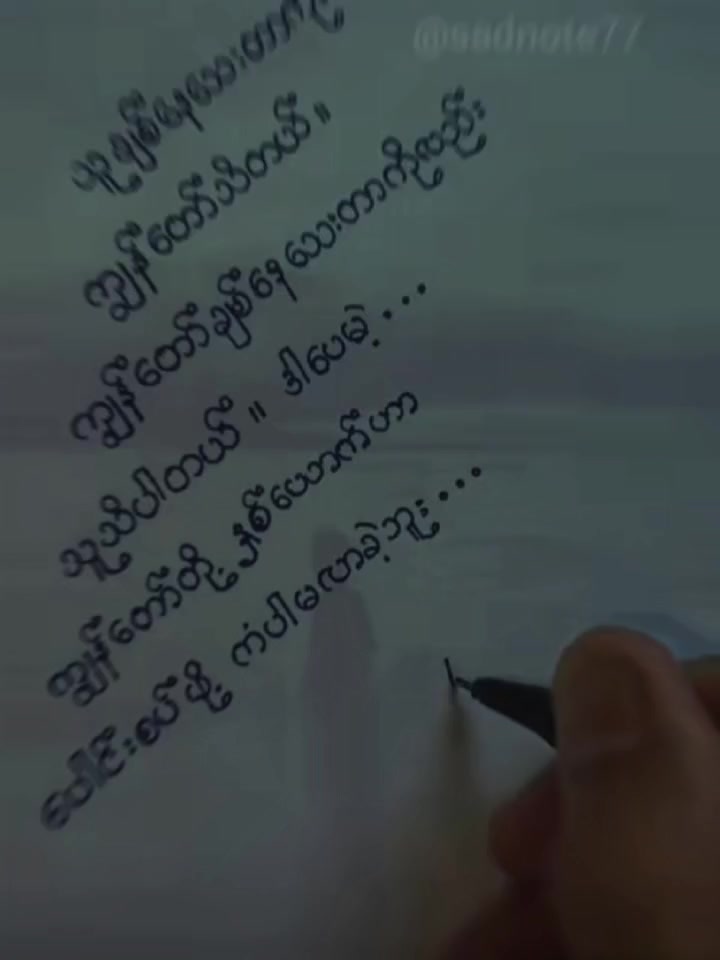 @sadnote77
သူချစ်နေသေးတာကို
ကျွန်တော်သိတယ်။
ကျွန်တော်ချစ်နေသေးတာကိုလည်း
သူသိပါတယ်။ ဒါပေမဲ့...
ကျွန်တော်တို့နှစ်ယောက်ဟာ
ပေါင်းစပ်ဖို့ ကံပါမလာခဲ့ဘူး...